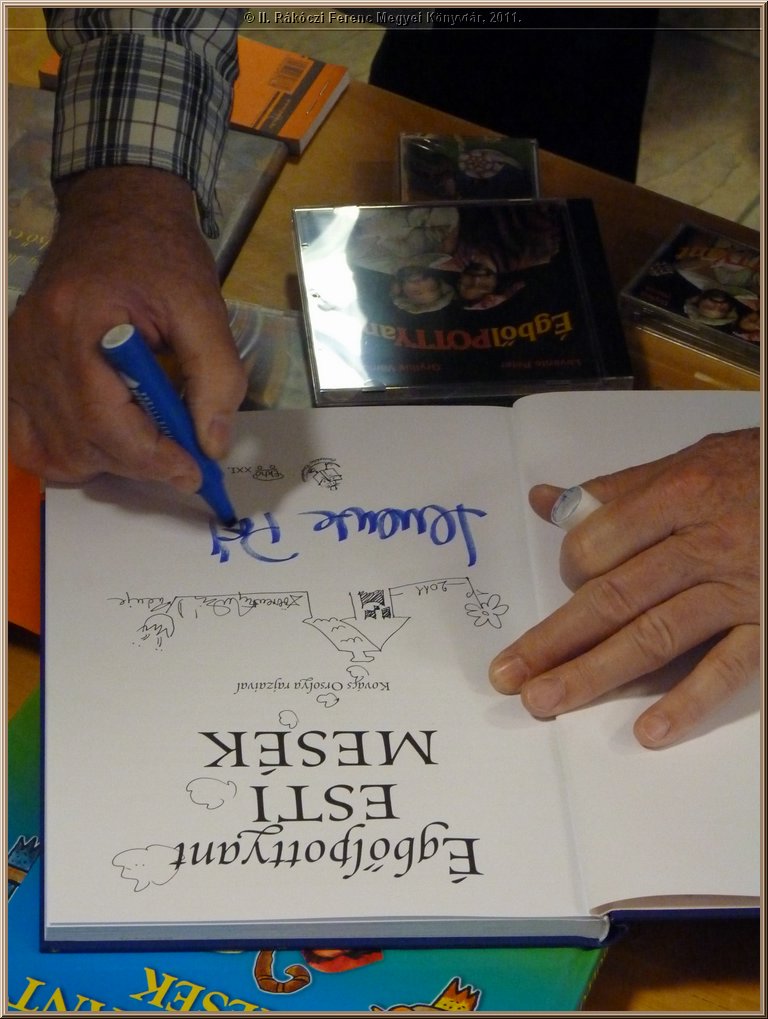 © II. Rákóczi Ferenc Megyei Könyvtár, 2011.
ÉgbőlPOTTYan
Levente Péter
Gryllus Vilm
Égbőlpottyant
ESTI
MESÉK
Kovács Orsolya rajzaival
2011
Levente Pét
XXI.
MESÉK